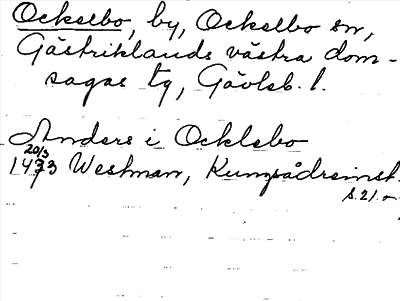 Ockelbo, by, Ockelbo sn,
Gästriklands västra dom-
sagas tg, Gävleb. l.
Anders i Ocklebo
20/3
1473 Westman, Kungsådreinst.
s. 21.